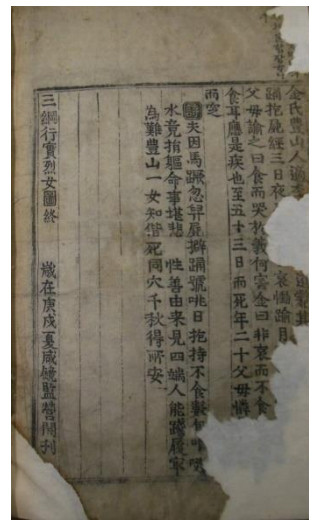 金氏豊山人適李
踊抱屍經三日夜 哀慟踰月
父母諭之曰食而哭於義何害金曰非哀而不食
食耳應是疾也至五十三日而死年二十父母憐
而窆
夫因馬蹶忽舁屍擗踊號咷日抱持不食數
水竟捐軀命事堪悲 性善由來見四端人能踐履寔
爲難豊山一女知偕死同穴千秋得所安
三綱行實烈女圖終 歲在庚戌夏咸鏡監營開刊